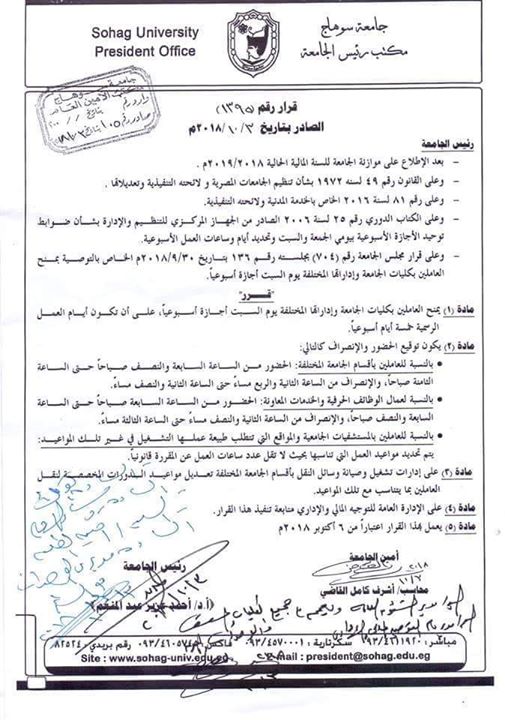 Sohag University
President Office
جامعة سوهاج
مكتب رئيس الجامعة
جامعة سوهاج
مكتب الأمين العام
قرار رقم (١٣٩٥)
الصادر بتاريخ ٢٠١٨/١٠/٣م
رئيس الجامعة
– بعد الإطلاع على موازنة الجامعة للسنة المالية الحالية ٢٠١٩/٢٠١٨م .
– وعلى القانون رقم ٤٩ لسنه ١٩٧٢ بشأن تنظيم الجامعات المصرية و لائحته التنفيذية وتعديلاتها .
– وعلى رقم ٨١ لسنه ٢٠١٦ الخاص بالخدمة المدنية ولائحته التنفيذية.
– وعلى الكتاب الدوري رقم ٢٥ لسنة ٢٠٠٦ الصادر من الجهاز المركزي للتنظيم والإدارة بشأن ضوابط
توحيد الأجازة الأسبوعية بيومي الجمعة والسبت وتحديد أيام وساعات العمل الأسبوعية.
– وعلى قرار مجلس الجامعة رقم (٧٠٤) بجلسته رقم ١٣٦ بتاريخ ٢٠١٨/٩/٣٠م الخاص بالتوصية بمنح
العاملين بكليات الجامعة وإداراتها المختلفة يوم السبت أجازة أسبوعياً.
"قرر"
مادة (١) يمنح العاملين بكليات الجامعة وإداراتها المختلفة يوم السبت أجازة أسبوعياً، على أن تكون أيام العمل
الرسمية خمسة أيام أسبوعياً.
مادة (٢) يكون توقيع الحضور والإنصراف كالتالي:
• بالنسبة للعاملين بأقسام الجامعة المختلفة: الحضور من الساعة السابعة والنصف صباحاً حتى الساعة
الثامنة صباحاً، والإنصراف من الساعة الثانية والربع مساءً حتى الساعة الثانية والنصف مساءً.
• بالنسبة لعمال الوظائف الحرفية والخدمات المعاونة: الحضور من الساعة السابعة صباحاً حتى الساعة
السابعة والنصف صباحاً، والإنصراف من الساعة الثانية والنصف مساءً حتى الساعة الثالثة مساءً.
• بالنسبة للعاملين بالمستشفيات الجامعية والمواقع التي تتطلب طبيعة عملها التشغيل في غير تلك المواعيد:
يتم تحديد مواعيد العمل التي تناسبها بحيث لا تقل عدد ساعات العمل عن المقررة قانونياً.
مادة (٣) على إدارات تشغيل وصيانة وسائل النقل بأقسام الجامعة المختلفة تعديل مواعيد الدورات المخصصة لنقل
العاملين بما يتناسب مع تلك المواعيد.
مادة (٤) على الإدارة العامة للتوجيه المالي والإداري متابعة تنفيذ هذا القرار.
مادة (٥) يعمل بهذا القرار اعتباراً من ٦ أكتوبر ٢٠١٨م
أمين الجامعة
رئيس الجامعة
محاسب/ أشرف كامل القاضي
(أ.د/ أحمد عزيز عبد المنعم)
Site : www.sohag-univ.edu.eg
Email : president@sohag.edu.eg